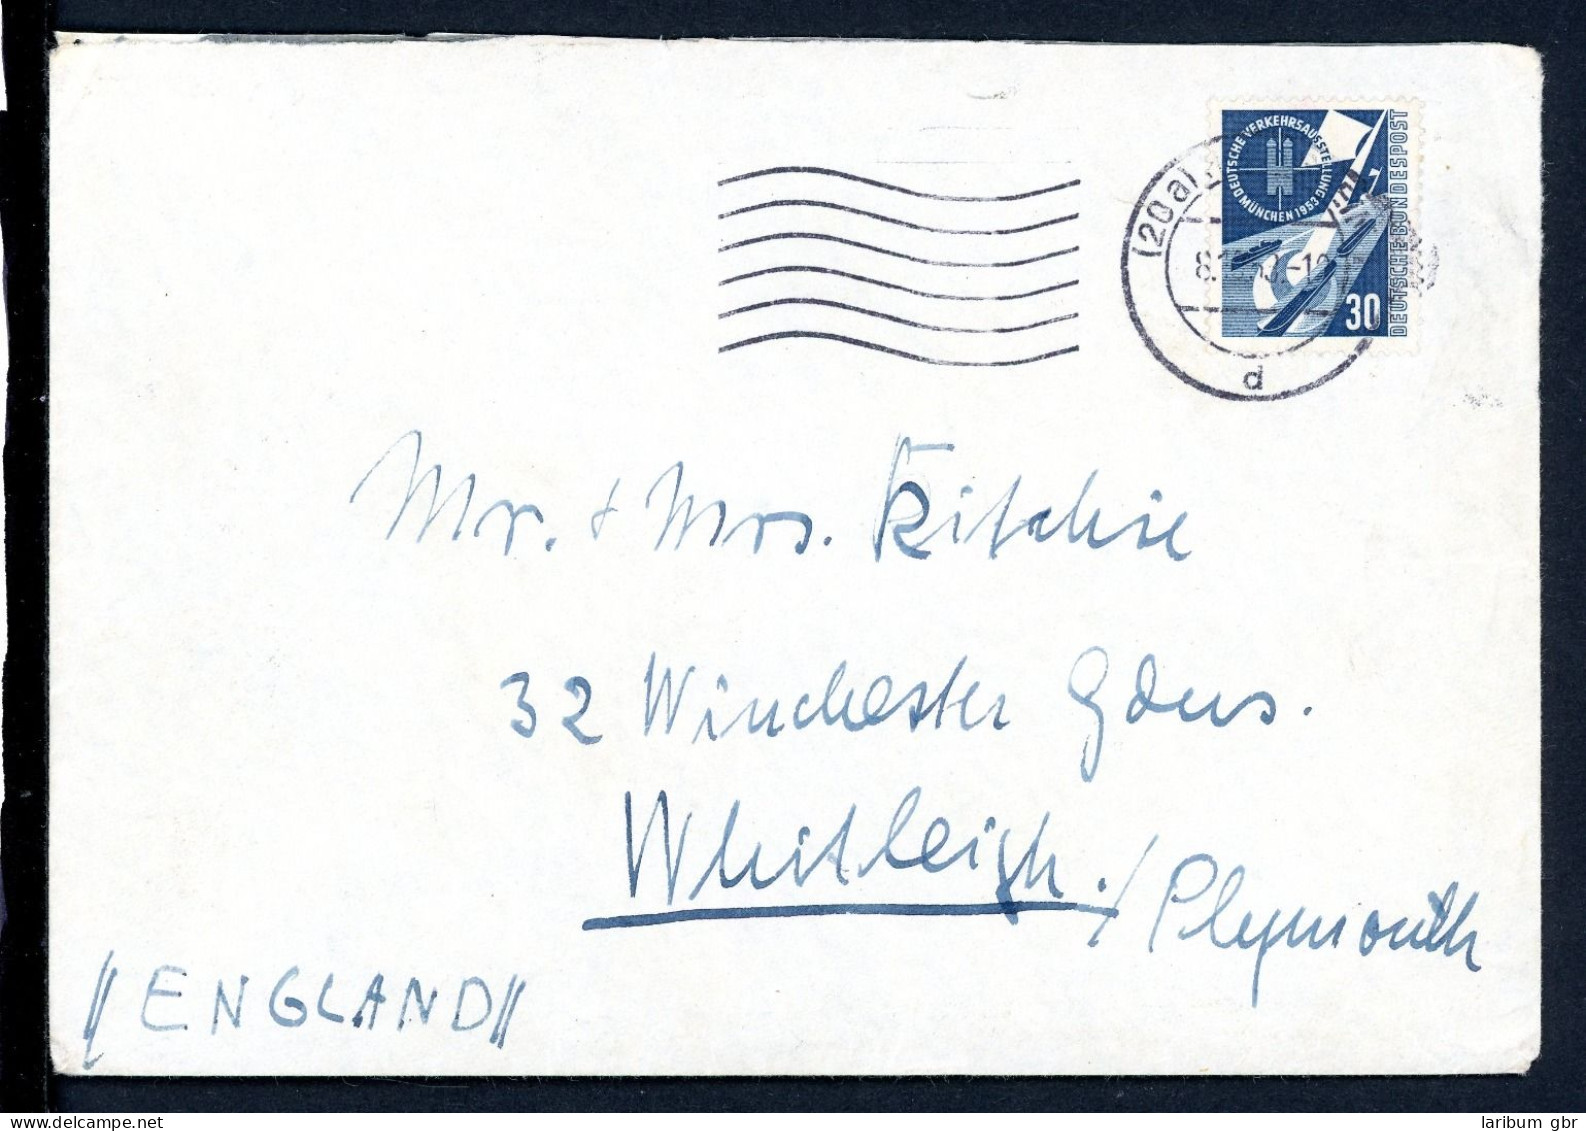 DEUTSCHE VERKEHRSAUSSTELLUNG
MÜNCHEN 1953
DEUTSCHE BUNDESPOST
30
(20a)
d
Mr. + Mrs. Ritchie
32 Winchester Gdns.
Whitleigh. / Plymouth
// ENGLAND //
laribum gbr